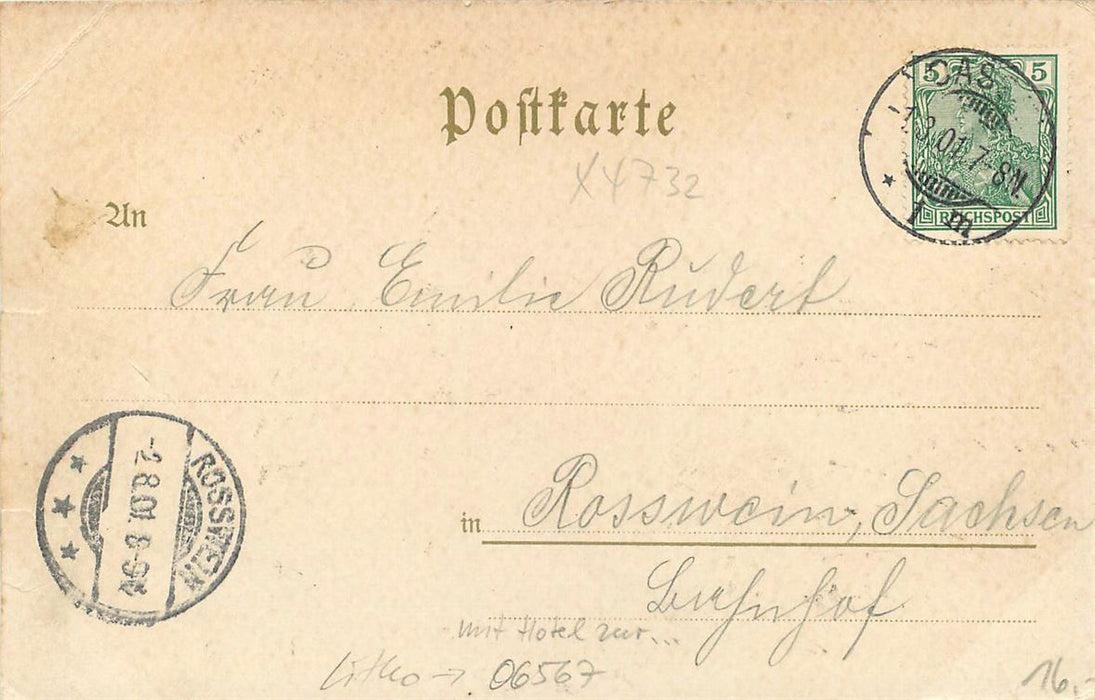 Postkarte
5 5
CAS
1.8.01.7-8N.
1 m
REICHSPOST
X4732
An
Frau Emilie Rudert
ROSSWEIN
-2.8.01. 8-9V.
in Rosswein, Sachsen
Bahnhof
mit Hotel zur...
Litho → 06567
16.-